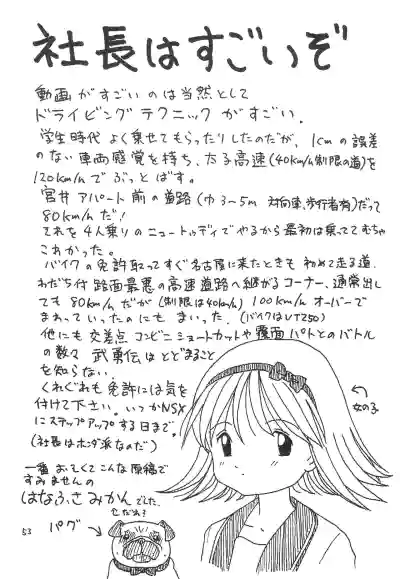 社長はすごいぞ
動画がすごいのは当然として
ドライビングテクニックがすごい.
学生時代よく乗せてもらったりしたのだが、1cmの誤差
のない車両感覚を持ち、方る高速(40km/h制限の道)を
120km/hでぶっとばす。
宮井アパート前の道路(巾3~5m 対向車、歩行者有)だって
80km/hだ!
それを4人乗りのニュートゥディでやるから最初は乗っててむちゃ
こわかった。
バイクの免許取ってすぐ名古屋に来たときも初めて走る道.
わだち付路面最悪の高速道路へ継がるコーナー、通常出し
ても80km/hだが(制限は40km/h)100km/hオーバーで
まわっていったのにもまいった.(バイクはVT250)
他にも交差点コンビニショートカットや覆面パトとのバトル
の数々 武勇伝はとどまること
を知らない.
くれぐれも免許には気を
付けて下さい.いつかNSX
にステップアップする日まで。
(社長はホンダ派なのだ)
女の子
一番おそくてこんな原稿で
すみませんの
はなふさみかんでした.
だれ?
パグ
53